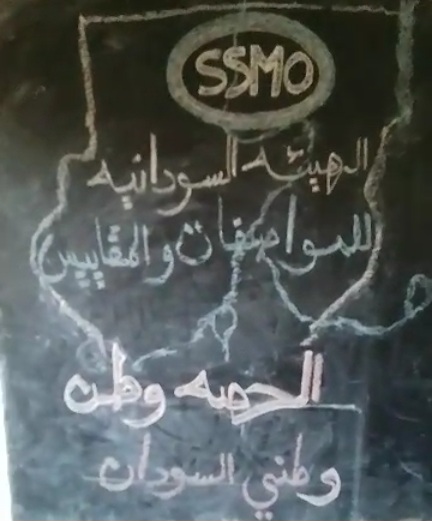 SSMO
الهيئه السودانيه
للمواصفات والمقاييس
الرحمه وطن
وطني السودان